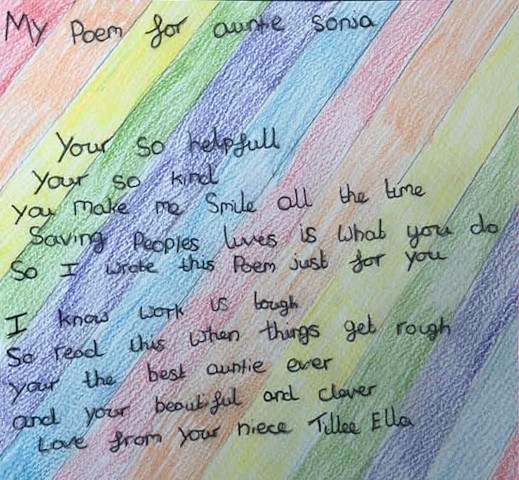 My Poem for auntie sonja
Your so helpfull
Your so kind
you make me Smile all the time
Saving Peoples lives is what you do
So I wrote this Poem just for you
I know work is tough
So read this when things get rough
your the best auntie ever
and your beautiful and clever
Love from your niece Tillee Ella